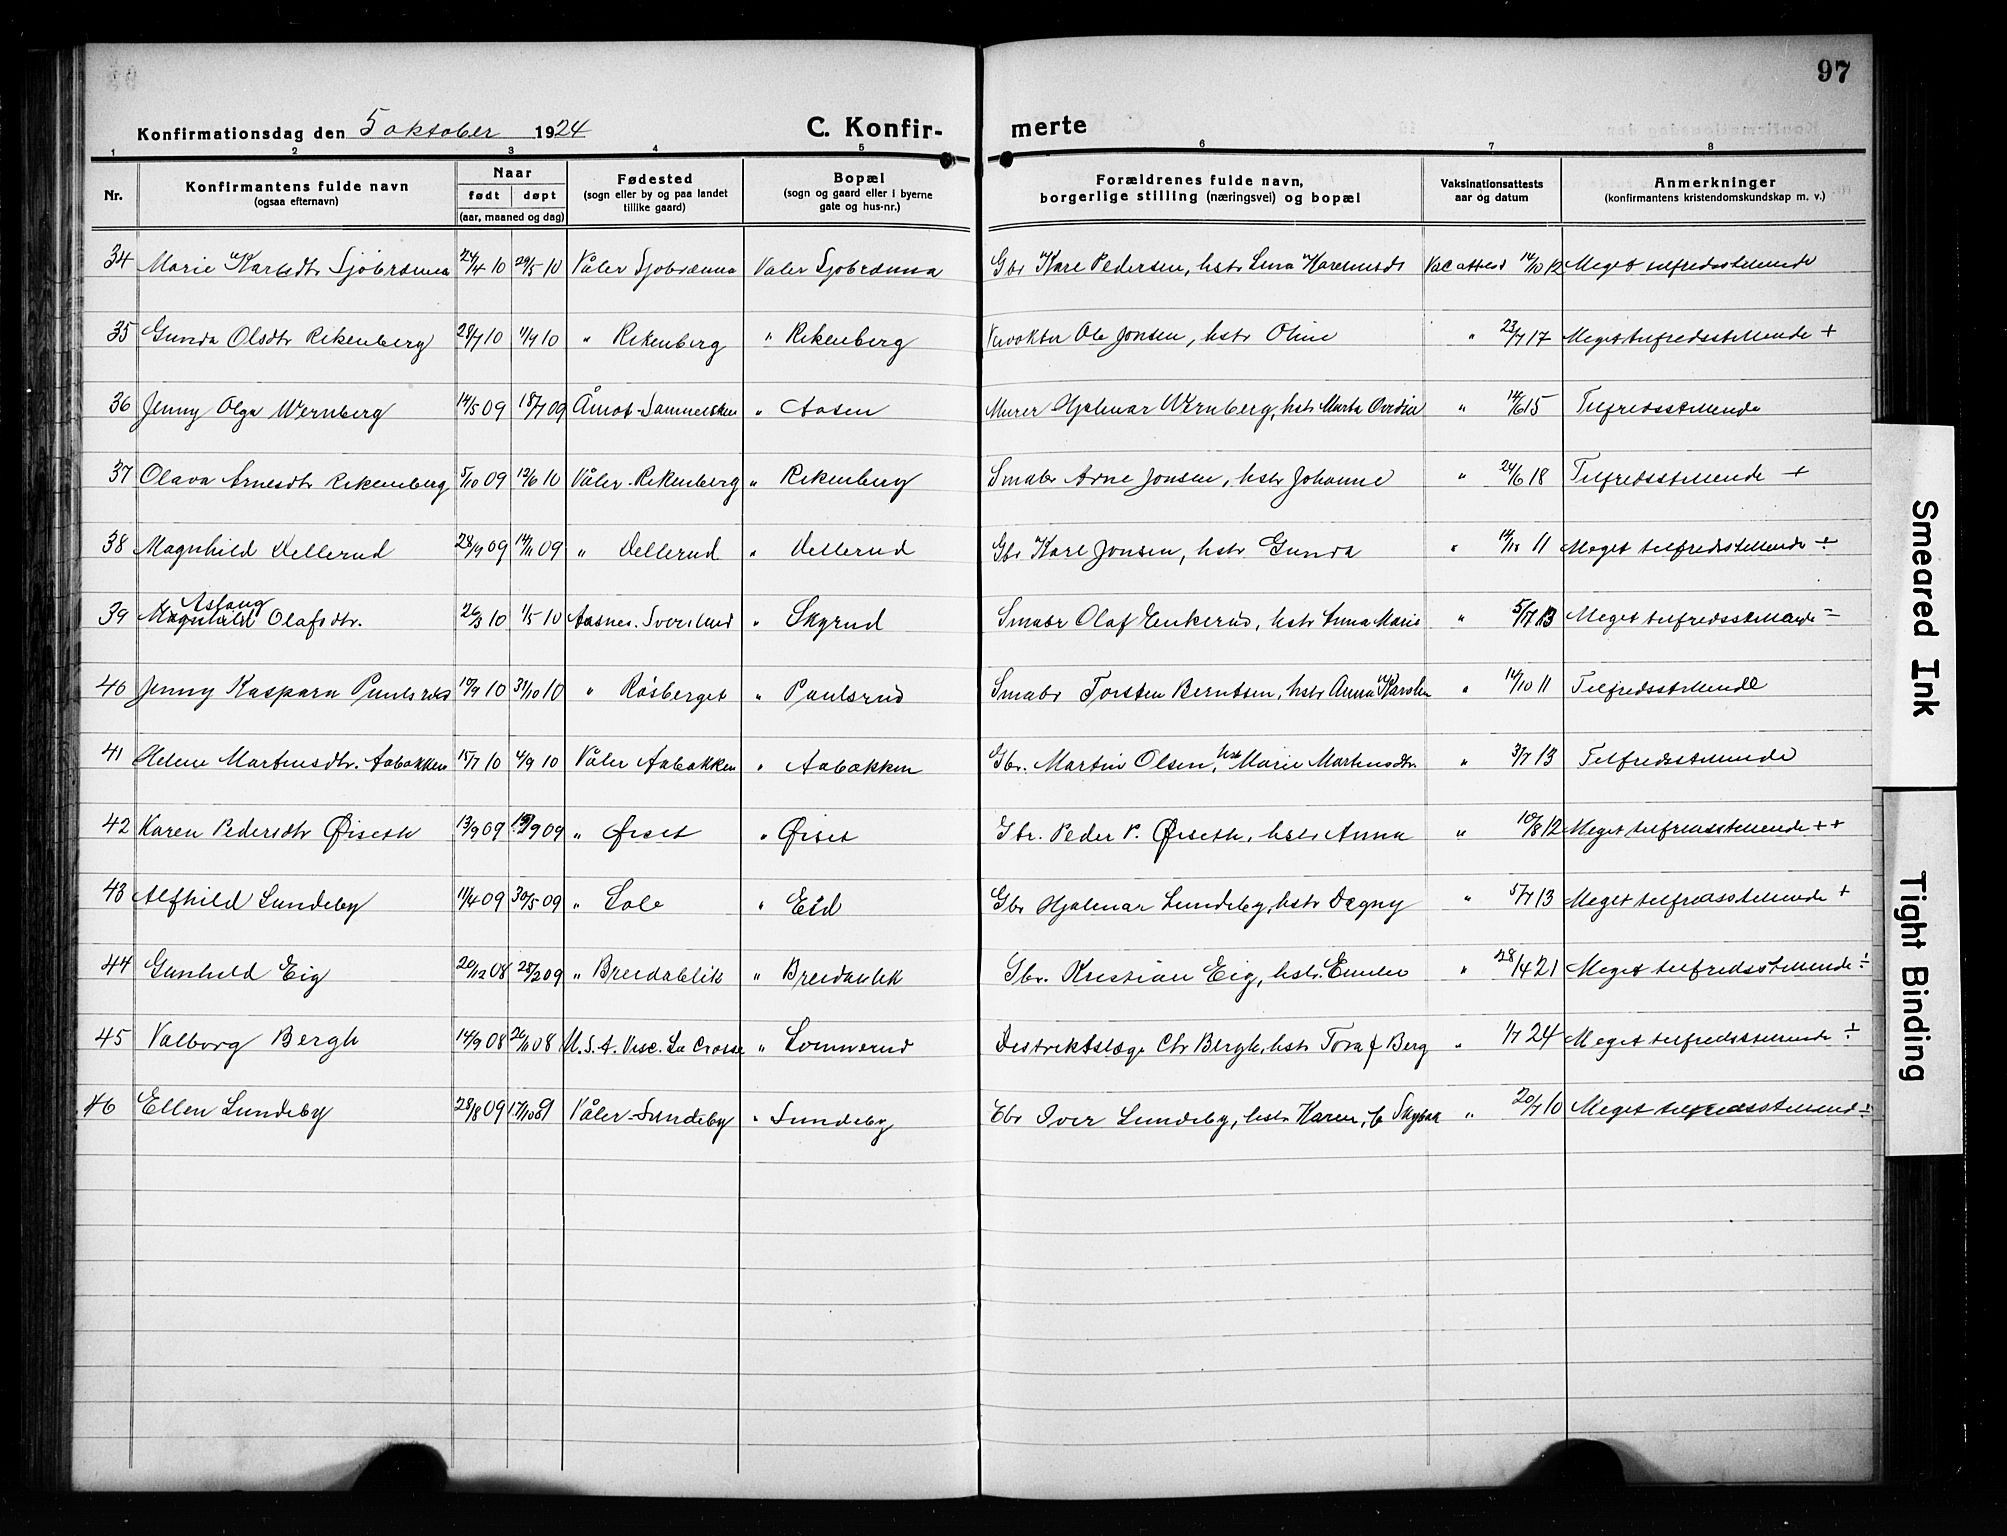 97
Konfirmationsdag den 5 oktober 1924 C. Konfirmerte
1 2 3 4 5 6 7 8
Nr. Konfirmantens fulde navn (ogsaa efternavn) Naar født døpt (aar, maaned og dag) Fødested (sogn eller by og paa landet tillike gaard) Bopæl (sogn og gaard eller i byerne gate og hus-nr.) Forældrenes fulde navn, borgerlige stilling (næringsvei) og bopæl Vaksinationsattests aar og datum Anmerkninger (konfirmantens kristendomskundskap m. v.)
34 Marie Karlsdtr Sjöbrænna 24/4 10 29/5 10 Våler Sjöbrænna Våler Sjöbrænna Gbr Kare Pedersen, hstr Lina Vac attest 14/10 12 Meget tilfredsstillende
35 Gunda Olsdtr Rekenberg 28/1 10 " Rekenberg " Rekenberg Ole Jonsen, hstr Oline " 23/7 17 Meget tilfredsstillende +
36 Jenny Olga Wernberg 14/5 09 18/7 09 Åmot " Aasen Murer Hjalmar Wernberg, hstr Marta " 14/6 15 Tilfredsstillende
37 Olava Arnesdtr Rekenberg 5/10 09 12/6 10 Våler Rekenberg " Rekenberg Smabr Arne Jonsen, hstr Johanne " 24/6 18 Tilfredsstillende +
38 Magnhild Vellerud 28/9 09 14/11 09 " Vellerud " Vellerud Gbr Kare Jonsen, hstr Gunda " 11 Meget tilfredsstillende ÷
39 Aslaug Magnhild Olafsdtr. 26/3 10 1/5 10 Aasnes. " Skyrud Smabr Olaf Enkerud, hstr Anna Marie " 5/7 13 Meget tilfredsstillende -
40 Jenny Kaspara 10 31/10 10 " Råsberget " Paulsrud Smabr Torsten Berntsen, hstr Anna Karoline " 14/10 11 Tilfredsstillende
41 Helene Martinsdtr. Aabakken 15/7 10 4/9 10 Våler Aabakken " Aabakken Gbr. Martin Olsen, hstr Marie Martinsdtr. " 3/7 13 Tilfredsstillende
42 Karen Pedersdtr Øiseth 13/9 09 09 " Øiset " Øiset Gbr. Peder P. Øiseth, hstr Anna " 10/8 12 Meget tilfredsstillende ++
43 Alfhild Lundeby 11/4 09 30/5 09 " Sole " Eid Gbr Hjalmar Lundeby, hstr Dagny " 5/7 13 Meget tilfredsstillende +
44 Gunhild Eig 20/12 08 28/2 09 " Breidablik " Breidablik Gbr. Kristian Eig, hstr. Emilie " 28/4 21 Meget tilfredsstillende ÷
45 Valborg Bergh 14/9 08 26/11 08 U. S. A. Visc. La Crosse " Lommerud Distriktslæge Chr Bergh, hstr Tora f Berg " 1/7 24 Meget tilfredsstillende ÷
46 Ellen Sundeby 28/8 09 17/10 09 Våler-Sundeby " Sundeby Gbr Iver Sundeby, hstr Karen, f " 20/7 10 Meget tilfredsstillend ÷
Smeared Ink
Tight Binding